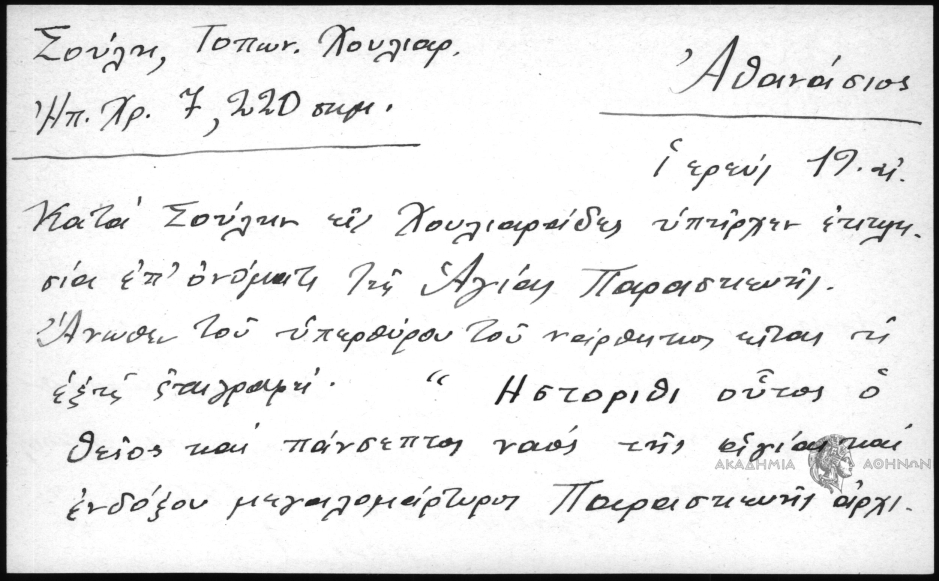 Σούλη, Τοπων. Χουλιαρ.
Ἀθανάσιος
Ἠπ. Χρ. 7, 220 σημ.
ἱερεύς 19. αἰ.
Κατά Σούλην εἰς Χουλιαράδες ὑπῆρχεν ἐκκλη-
σία ἐπ' ὀνόματι τῆς Ἁγίας Παρασκευῆς.
Ἄνωθεν τοῦ ὑπερθύρου τοῦ νάρθηκος εἶναι ἡ
ἑξῆς ἐπιγραφή· " Ηστοριθι οὗτος ὁ
θεῖος καί πάνσεπτος ναός τῆς ἁγίας καί
ΑΚΑΔΗΜΙΑ ΑΘΗΝΩΝ
ἐνδόξου μεγαλομάρτυρος Παρασκευῆς ἀρχι-